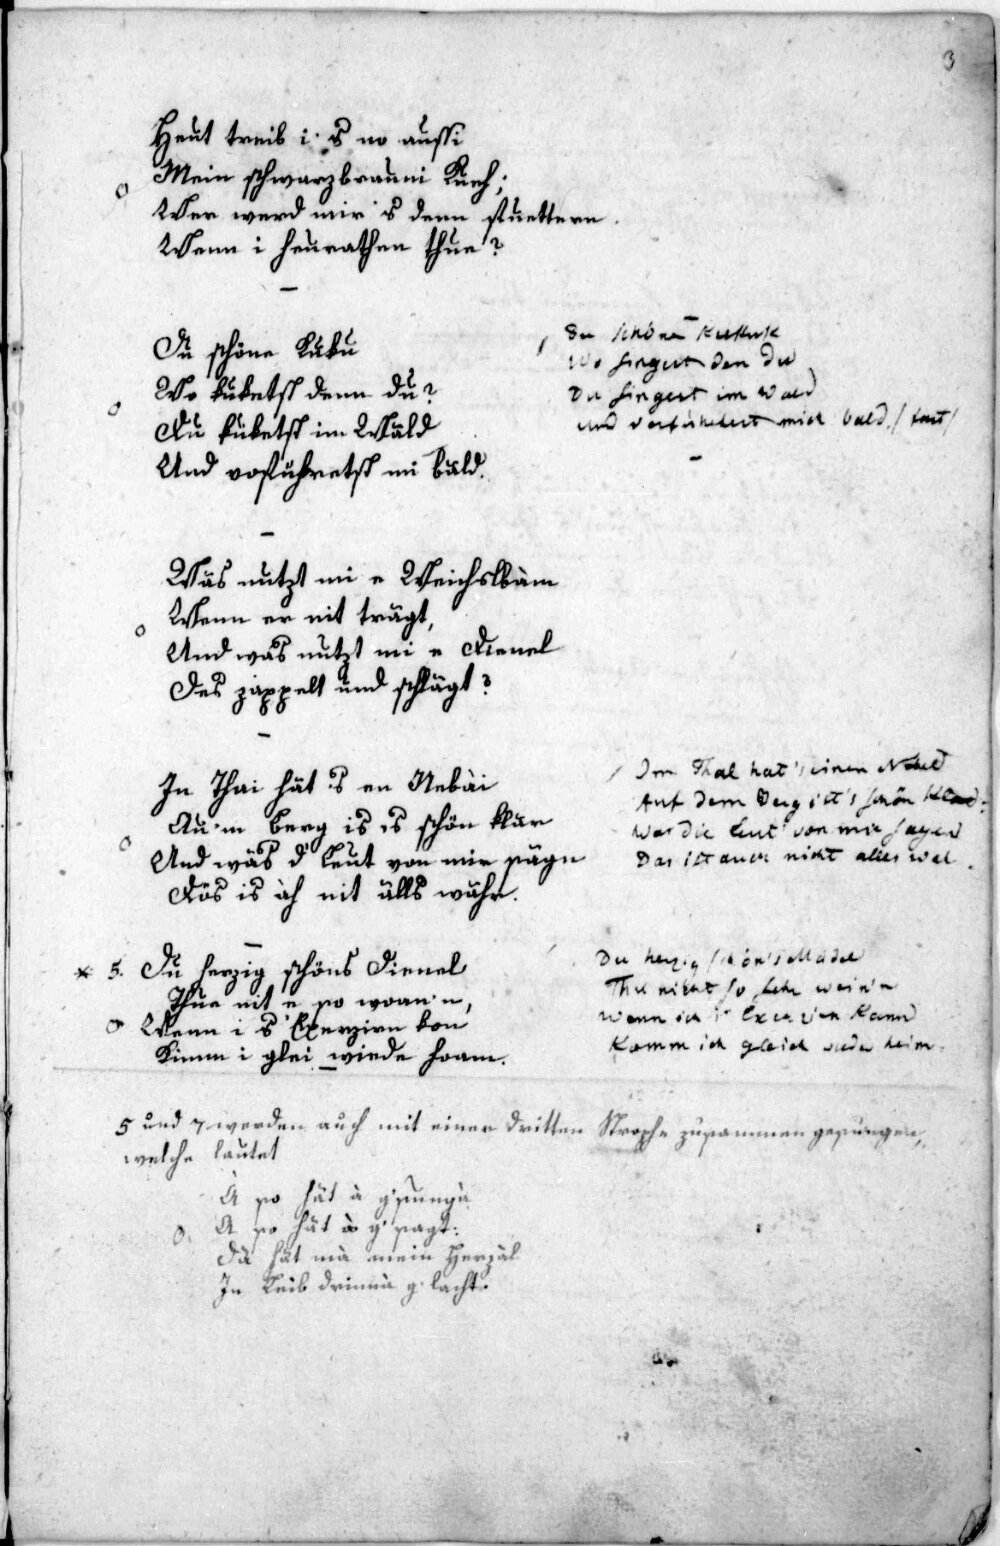 3
Heut treib i 's no aussi
Mein schwarzbrauni Kueh;
Wer werd mir 's denn fuettern
Wenn i heurathen thue?
Du schöne Kuku
Wo kuketst denn du?
Du kuketst im Wäld
Und vofuhretst mi bäld.
Du schöner Kukkuk
Wo singest den du
Du singest im Wald
und verführest mich bald.
Wäs nutzt mi e Weichslbàm
Wenn er nit trägt,
Und wäs nutzt mi e Dienel
Des zäppelt und schlägt?
In Thai hät 's en Nebài
Au'm Berg is 's schön klär
Und wäs d' Leut von mir sägn
Dös is àh nit älls wuhr.
Im Thal hat's einen Nebel
Auf dem Berg ist's schön klar
Was die Leut von mir sagen
Das ist auch nicht alles wal
5. Du herzig schöns Dienel
Thue nit e so woan'n,
Wenn i 's Exerzirn kon
Kimm i glei wiede hoam.
Du herzig schön's Mädel
Thu nicht so sehr wein'n
Wenn ich 's Exerzir'n kann
Komm ich gleich wieder heim.
5 und 7 werden auch mit einer dritten Strophe zusammen gesungen,
welche lautet
A so hät à g'sungà
A so hät à g'sagt:
Dà hät mà mein Herzàl
In Leib drinnà g'lacht.